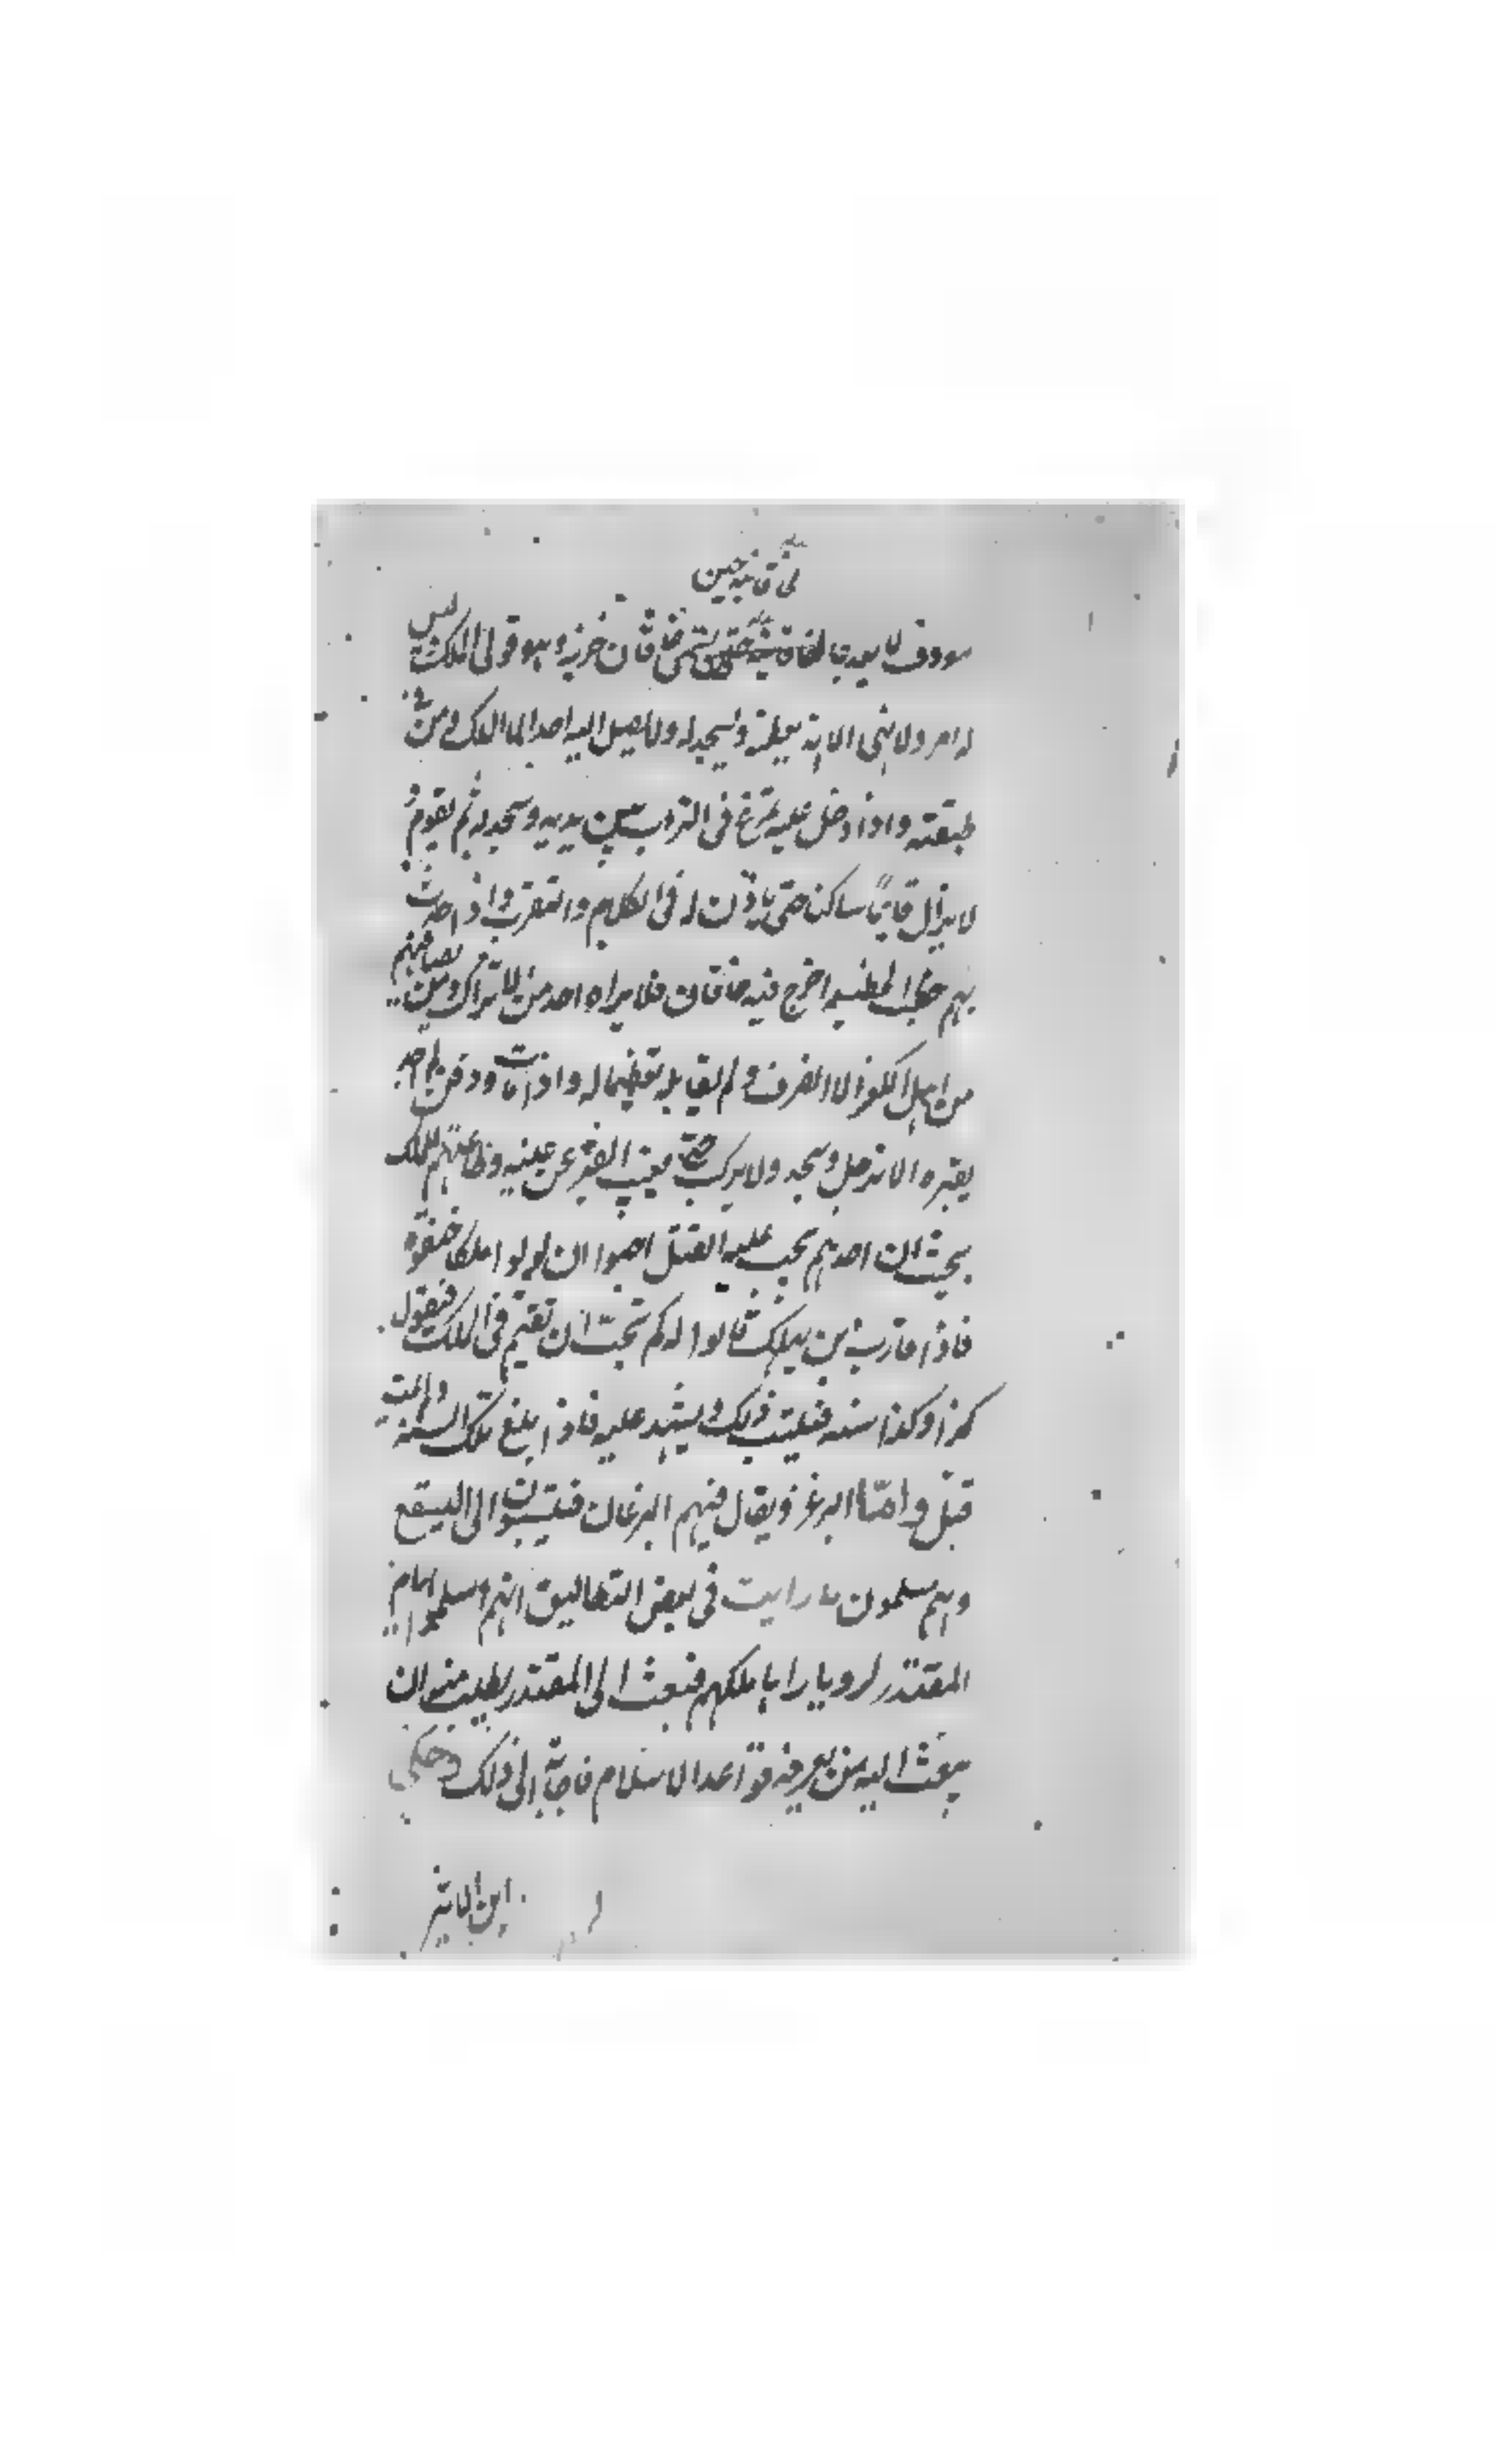 معروف لا يعدی لخاقنية حتی يسمی خاقان خزر وهو فوق الملك ليس
له امر ولا نهی الا انه يعظم ويسجد له ولا يصل اليه احد الا الملك ومن فی
طبقته واذا دخل عليه تمرغ فی التراب بين يديه وسجد له ثم يقوم و
لا يزال قايماً ساكنا حتی ياذن له فی الكلام والتقرب واذا حدث
بهم خطب عظيم اخرج فيه خاقان فلا يراه احد من الاتراك ومن يصاقبهم
من اهل الكفر الا انصرف ولم يقابله تعظيما له واذا مات ودفن لم يمر احد
بقبره الا ترجل وسجد ولا يركب حتی يغيب القبر عن عينيه وطاعتهم للملك
بحيث ان احدهم يجب عليه القتل احبوا ان لو لوا ملكا خنقوه
فاذا قارب من يهلك قالوا له كم تحب ان تقيم فی الملك فيقول
كذا وكذا سنه فيكتب ذلك ويشهد عليه فاذا بلغ تلك السنة ولم يمت
قتل واما البرغز ويقال فيهم البرغان فينسبون الی اليسقع
وهم مسلمون ما رايت فی بعض التعاليق انهم اسلموا ايام
المقتدر لرويا راها ملكهم فبعث الی المقتدر يطلب منه ان
يبعث اليه من يعرفه قواعد الاسلام فاجابه الی ذلك وحكی
ابن الاثير